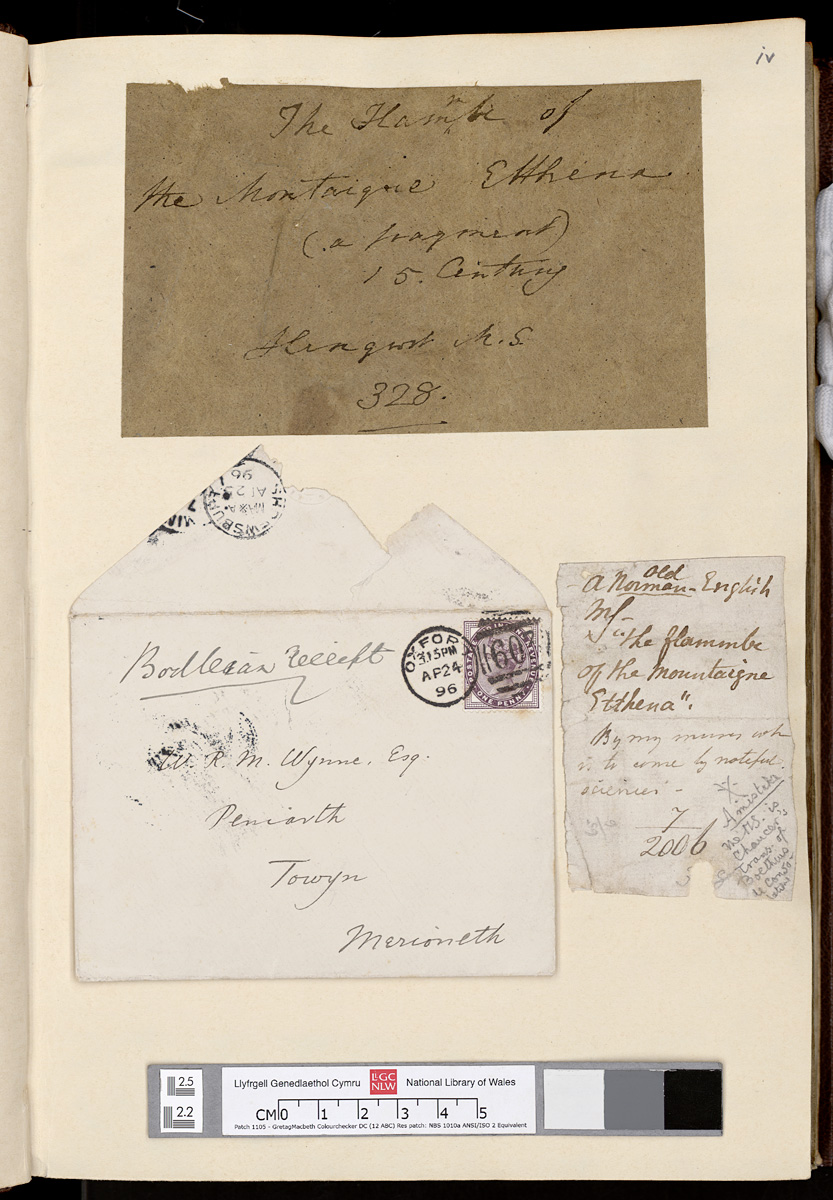 iv
The Flam̃be of
the Montaigne Etthena
(a fragment)
15. Century
Hengwrt M.S.
328.
SHREWSBURY
AP 25
96
Bodleian Receipt
OXFORD
3.15PM
AP 24
96
160
ONE PENNY
W. R. M. Wynne, Esq.
Peniarth
Towyn
Merioneth
Old
A Norman-English
MS-
"The flammbe
of the Mountaigne
Etthena".
By my muses
is to come by noteful.
sciences -
7
2006
A mistake
the MS. is
Chaucer's
Trans. of
Boethius
de Conso-
lation
2.5
2.2
Llyfrgell Genedlaethol Cymru LLGC NLW National Library of Wales
CM 0 1 2 3 4 5
Patch 1105 - GretagMacbeth Colourchecker DC (12 ABC) Res patch: NBS 1010a ANSI/ISO 2 Equivalent